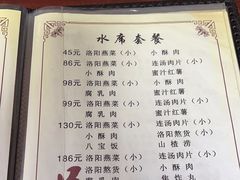 水席套餐
45元 洛阳燕菜（小） 小酥肉
86元 洛阳燕菜（小） 连汤肉片（小）
小酥肉 蜜汁红薯
98元 洛阳燕菜（小） 小酥肉
腐乳肉 蜜汁红薯
99元 洛阳燕菜（小） 连汤肉片（小）
腐乳肉 蜜汁红薯
130元 洛阳燕菜（小） 连汤肉片（小）
小酥肉 洛阳熬货（小）
八宝饭 山楂涝
186元 洛阳燕菜（小） 连汤肉片（小）
洛阳熬货（小） 小酥肉
腐乳肉 焦炸丸